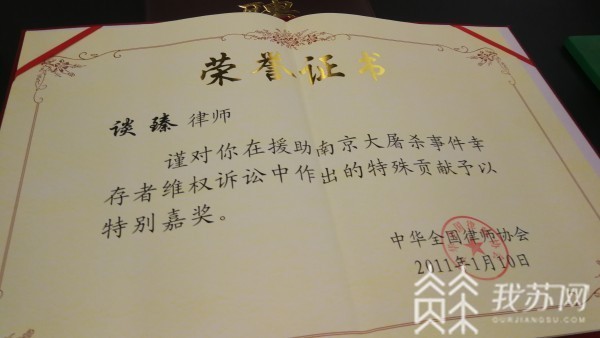 荣誉证书
谈臻 律师
谨对你在援助南京大屠杀事件幸
存者维权诉讼中作出的特殊贡献予以
特别嘉奖。
中华全国律师协会
2011年1月10日
我苏网
OURJIANGSU.COM